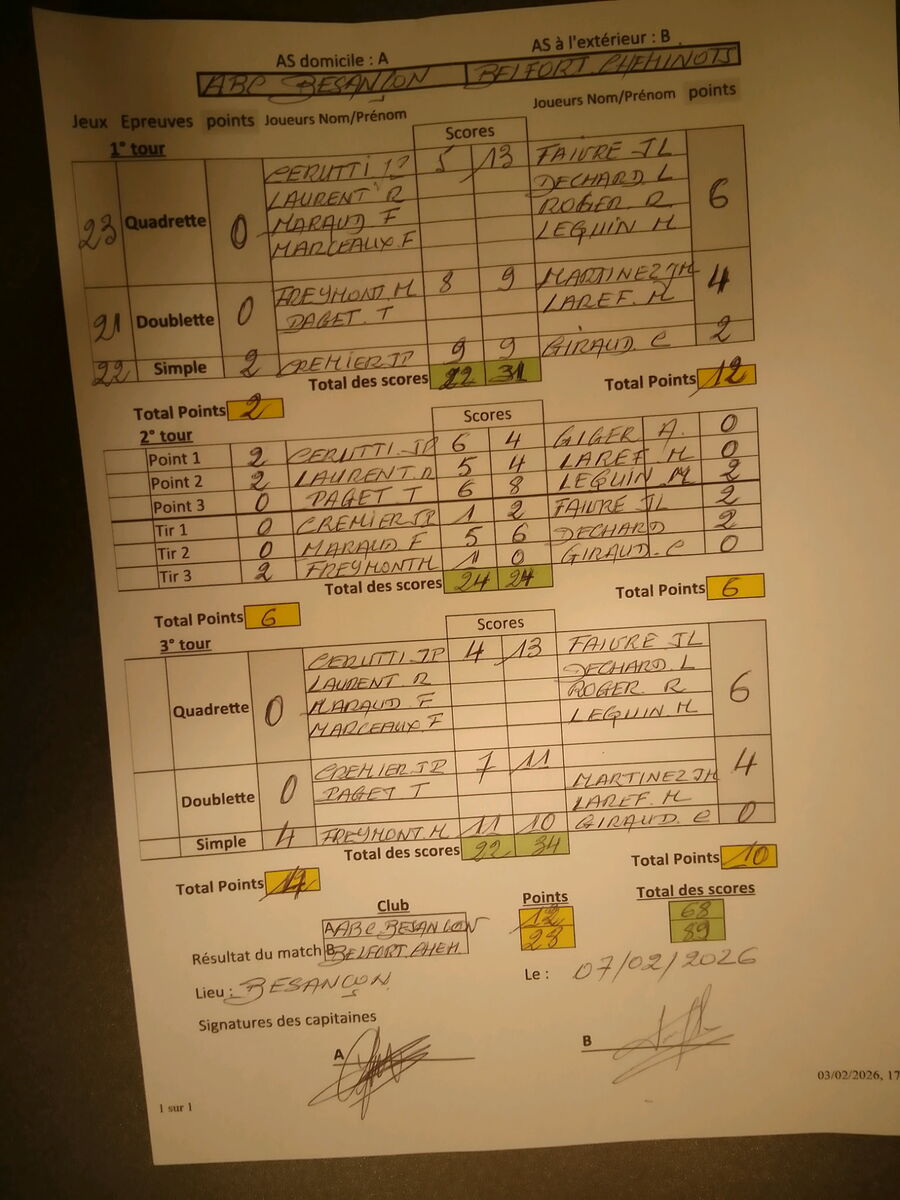 AS domicile : A AS à l'extérieur : B
ABC BESANÇON BELFORT CHEMINOTS
Jeux Epreuves points Joueurs Nom/Prénom Joueurs Nom/Prénom points
1° tour Scores
CERUTTI JP 5 13 FAIVRE JL
LAURENT R DECHARD L
23 Quadrette 0 MARAUD F ROGER R 6
MARCEAUX.F LEQUIN M
FREYMONT.M 8 9 MARTINEZ JM
21 Doublette 0 PAGET. T LAREF. M 4
22 Simple 2 CREMIER JP 9 9 GIRAUD. C 2
Total des scores 22 31 Total Points 12
Total Points 2
2° tour Scores
Point 1 2 CERUTTI. JP 6 4 GIGER A. 0
Point 2 2 LAURENT. R 5 4 LAREF. M 0
Point 3 0 PAGET T 6 8 LEQUIN M 2
Tir 1 0 CREMIER JP 1 2 FAIVRE JL 2
Tir 2 0 MARAUD. F 5 6 DECHARD 2
Tir 3 2 FREYMONT M 1 0 GIRAUD. C 0
Total des scores 24 24 Total Points 6
Total Points 6
3° tour Scores
CERUTTI. JP 4 13 FAIVRE JL
LAURENT R DECHARD. L
Quadrette 0 MARAUD F ROGER. R 6
MARCEAUX. F LEQUIN. M
CREMIER. JP 7 11
Doublette 0 PAGET T MARTINEZ JM 4
LAREF. M
Simple 4 FREYMONT. M 11 10 GIRAUD. C 0
Total des scores 22 34 Total Points 10
Total Points
Club Points Total des scores
A ABC BESANCON 12 68
Résultat du match B BELFORT. CHEM. 28 89
Lieu : BESANÇON Le : 07/02/2026
Signatures des capitaines
A B
03/02/2026, 17
1 sur 1